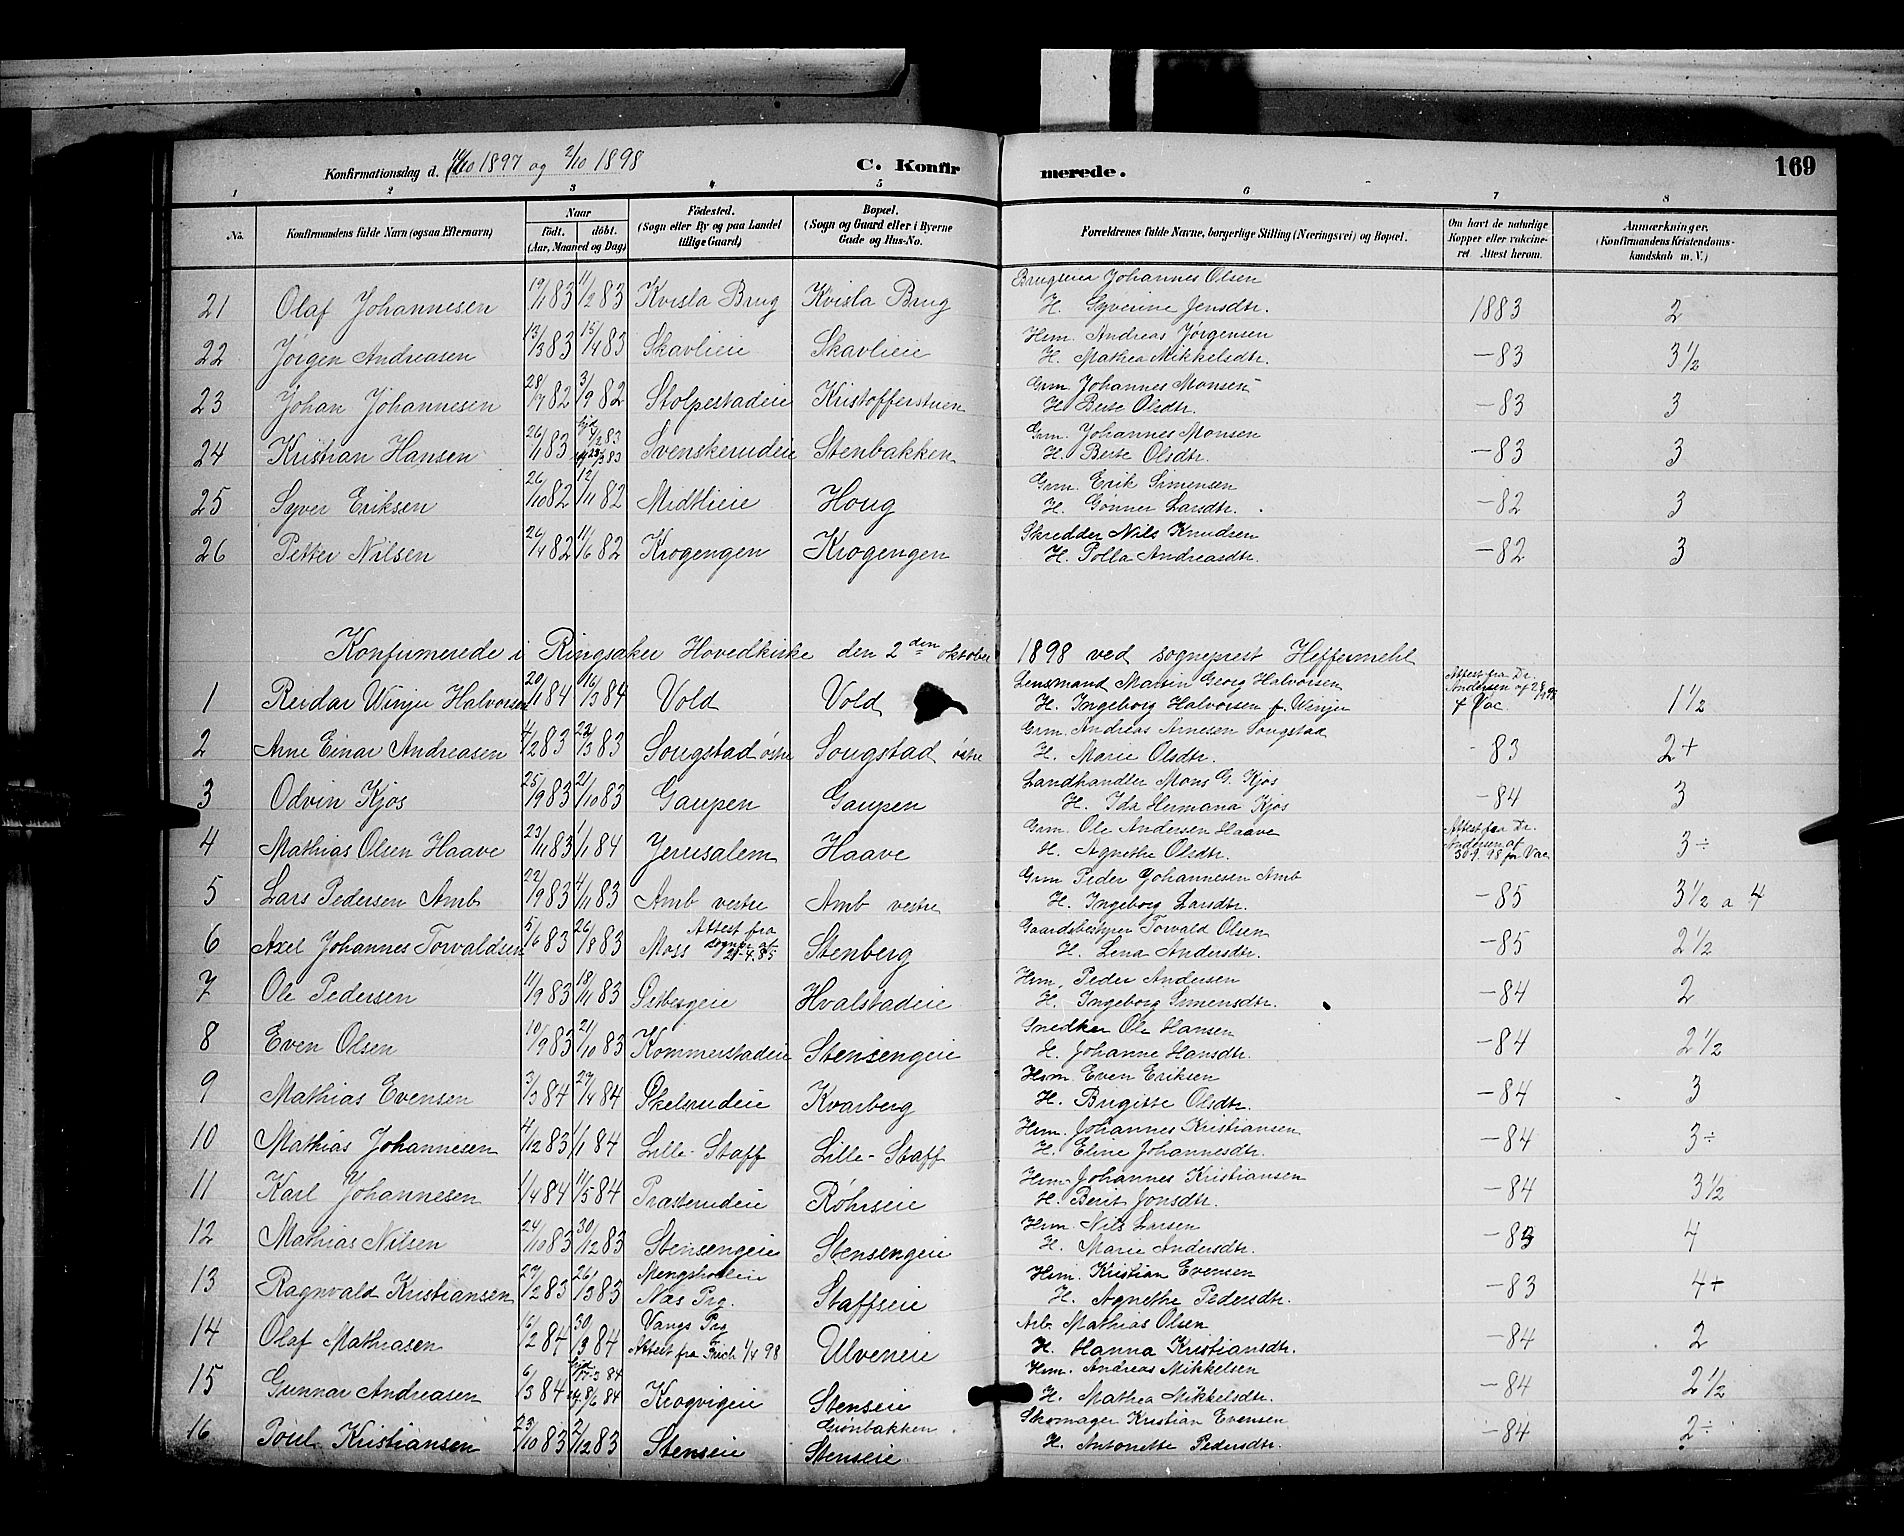 Konfirmationsdag d. 10/10 1897 og 2/10 1898 C. Konfirmerede. 169
1 2 3 4 5 6 7 8
No. Konfirmandens fulde Navn (ogsaa Efternavn) Naar födt. döbt. (Aar, Maaned og Dag) Födested. (Sogn eller By og paa Landet tillige Gaard) Bopæl. (Sogn og Gaard eller i Byerne Gade og Hus-No. Forældrenes fulde Navne, borgerlige Stilling (Næringsvei) og Bopæl. Om havt de naturlige Kopper eller vakcineret. Attest herom. Anmærkninger. (Konfirmandens Kristendomskundskab m. V.)
21 Olaf Johannesen 19/1 83 11/2 83 Kvisla Brug Kvisla Brug Johannes Olsen H. Syverine Jensdtr. 1883 2
22 Jørgen Andreasen 13/3 83 15/4 83 Skavlieie Skavlieie Hsm. Andreas Jörgensen H. Mathea Mikkelsdtr. -83 3½
23 Johan Johannesen 28/7 82 3/9 82 Stolpestadeie Kristofferstuen Grm. Johannes Monsen H. Berte Olsdtr. -83 3
24 Kristian Hansen 26/1 83 Svenskerudeie Stenbakken Grm. Johannes Monsen H. Berte Olsdtr. -83 3
25 Syver Eriksen 26/10 82 12/11 82 Midtlieie Houg Grm. Erik Simensen H. Gunner Larsdtr. -82 3
26 Petter Nilsen 26/4 82 11/6 82 Krogengen Krogengen Skredder Nils Knudsen H. Polla Andreasdtr. -82 3
Konfirmerede i Ringsaker Hovedkirke den 2den oktober 1898 ved sogneprest Heffermehl
1 Reidar Winje Halvorsen 20/1 84 16/3 84 Vold Vold Lensmand Martin Georg Halvorsen H. Ingeborg Halvorsen f. Winjer Attest fra Dr. Andersen af f Vac 1½
2 Arne Einar Andreasen 4/2 83 23/3 83 Sougstad östre Sougstad östre Grm. Andreas Arnesen Sougstad H. Marie Olsdtr. -83 2+
3 Odvin Kjos 25/9 83 21/10 83 Gaupen Gaupen Landhandler Mons G. Kjos H. Ida Hermana Kjos -84 3
4 Mathias Olsen Haave 23/11 83 1/1 84 Jerusalem Haave Grm. Ole Andersen Haave H. Agnethe Olsdtr. Attest fra Dr. Andersen af 30 9. 98 for Vac. 3÷
5 Lars Pedersen Amb 22/9 83 4/11 83 Amb vestre Amb vestre Grm Peder Johannesen Amb H. Ingeborg Larsdtr. -85 3½ a 4
6 Axel Johannes Torvaldsen 5/6 83 26/8 83 Moss Attest fra sognpr. af 21-4.85 Stenberg Gaardsbestyrer Torvald Olsen H. Lena Andersdtr. -85 2½
7 Ole Pedersen 11/9 83 18/11 83 Hvalstadeie Hsm. Peder Andersen H. Ingeborg Simensdtr. -84 2
8 Even Olsen 10/9 83 21/10 83 Kommerstadeie Stensengeie Snedker Ole Hansen H. Johanne Hansdtr. -84 2½
9 Mathias Evensen 3/3 84 27/4 84 Skelsrudeie Kvarberg Hsm. Even Eriksen H. Brigitte Olsdtr. -84 3
10 Mathias Johannesen 4/12 83 1/1 84 Lille-Staff Lille-Staff Hsm. Johannes Kristiansen H. Eline Johannesdtr. -84 3÷
11 Karl Johannesen 1/4 84 11/5 84 Prasterudeie Röhrseie Hsm. Johannes Kristiansen H. Berit Jonsdtr. -84 3½
12 Mathias Nilsen 24/10 83 30/12 83 Stensengeie Stensengeie Hsm. Nils Larsen H. Marie Andersdtr. -83 4
13 Ragnvald Kristiansen 27/2 83 26/3 83 Mengsholeie Næs Prg. Staffseie Hsm. Kristian Evensen H. Agnethe Pedersdtr. -83 4+
14 Olaf Mathiasen 16/2 84 30/3 84 Vangs Prg Attest fra Frich 1/4 98 Ulveneie Arb. Mathias Olsen H. Hanna Kristiansdtr. -84 2
15 Gunnar Andreasen 6/3 84 Krogvigeie Stenseie Hsm. Andreas Mikkelsen H. Mathea Mikkelsdtr. -84 2½
16 Poul Kristiansen 23/10 83 2/12 83 Stenseie Grönbakken Stenseie Skomager Kristian Evensen H. Antonette Pedersdtr. -84 2÷